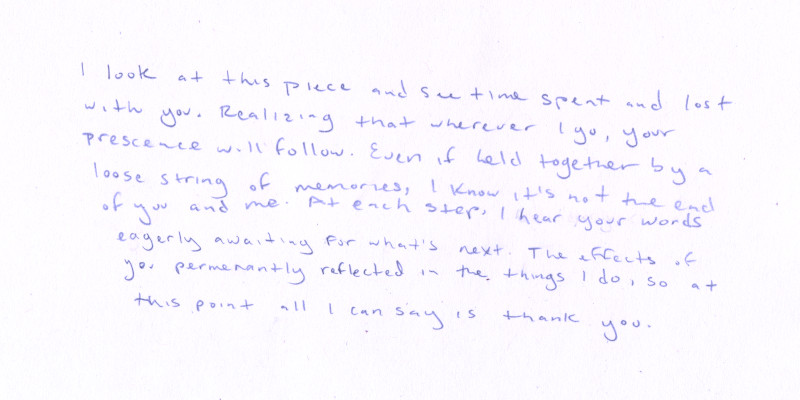 I look at this piece and see time spent and lost
with you. Realizing that wherever I go, your
prescence will follow. Even if held together by a
loose string of memories, I know it's not the end
of you and me. At each step, I hear your words
eagerly awaiting for what's next. The effects of
you permenantly reflected in the things I do, so at
this point all I can say is thank you.